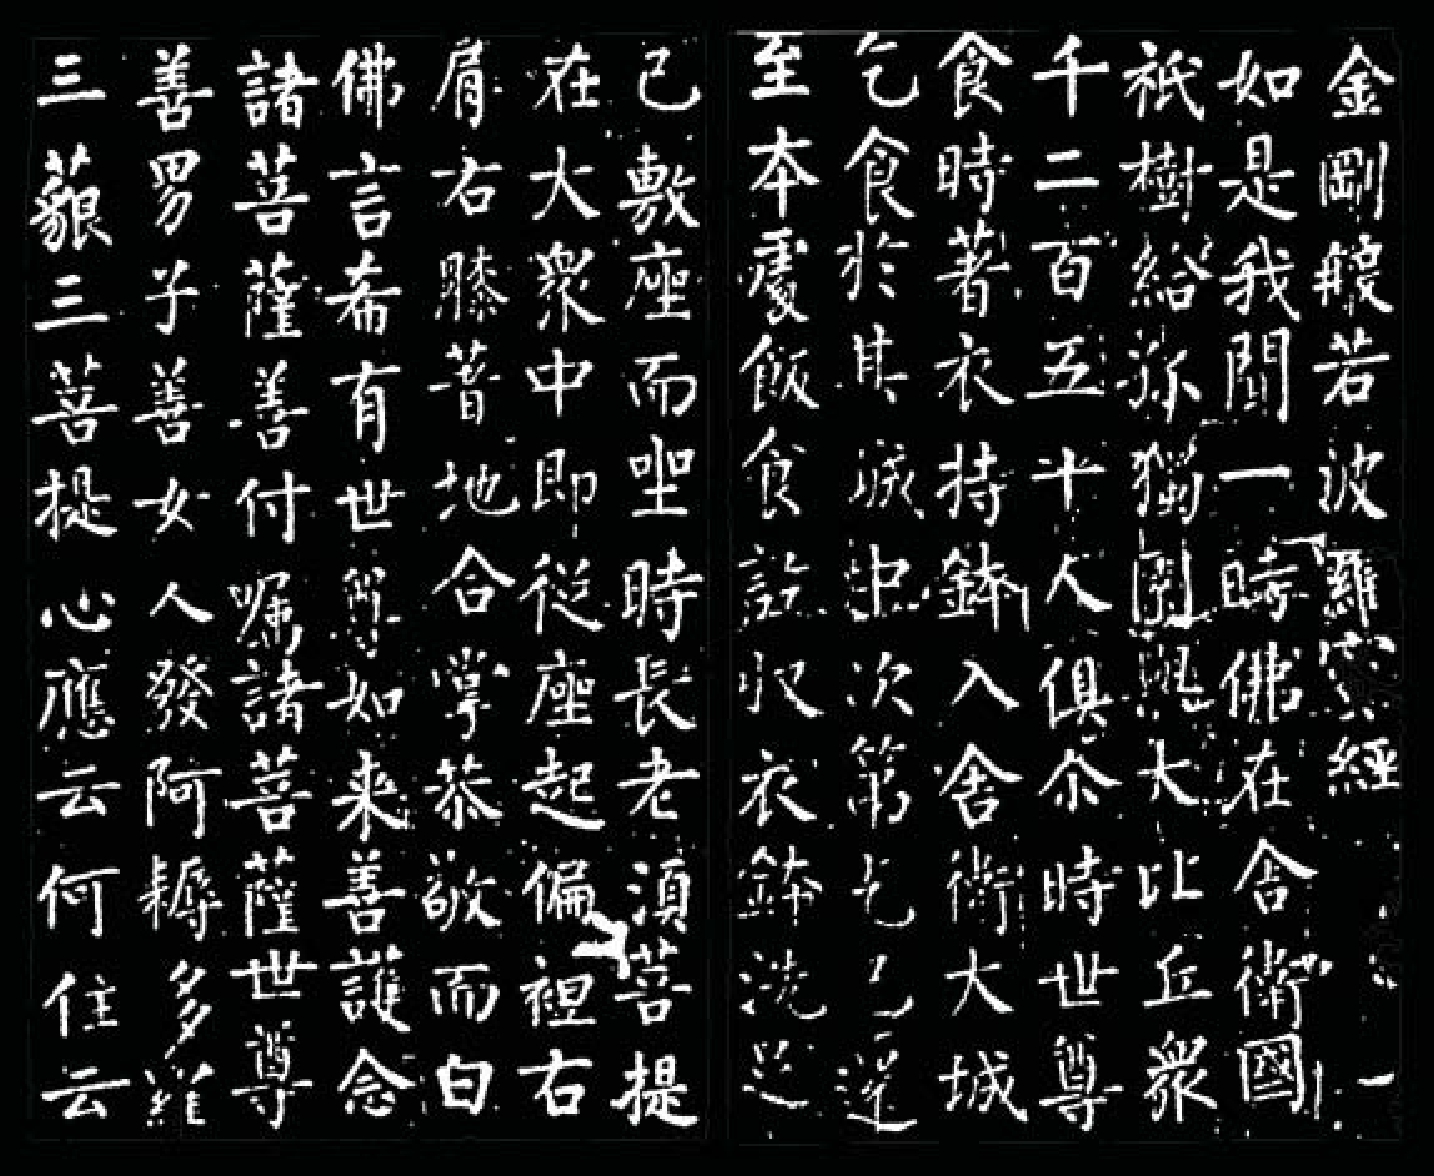 金剛般若波羅蜜經
如是我聞一時佛在舍衛國
祇樹給孤獨園與大比丘眾
千二百五十人俱尒時世尊
食時著衣持鉢入舍衛大城
乞食於其城中次第乞已還
至本處飯食訖收衣鉢洗足
已敷座而坐時長老須菩提
在大眾中即從座起偏袒右
肩右膝著地合掌恭敬而白
佛言希有世尊如来善護念
諸菩薩善付嘱諸菩薩世尊
善男子善女人發阿耨多羅
三藐三菩提心應云何住云